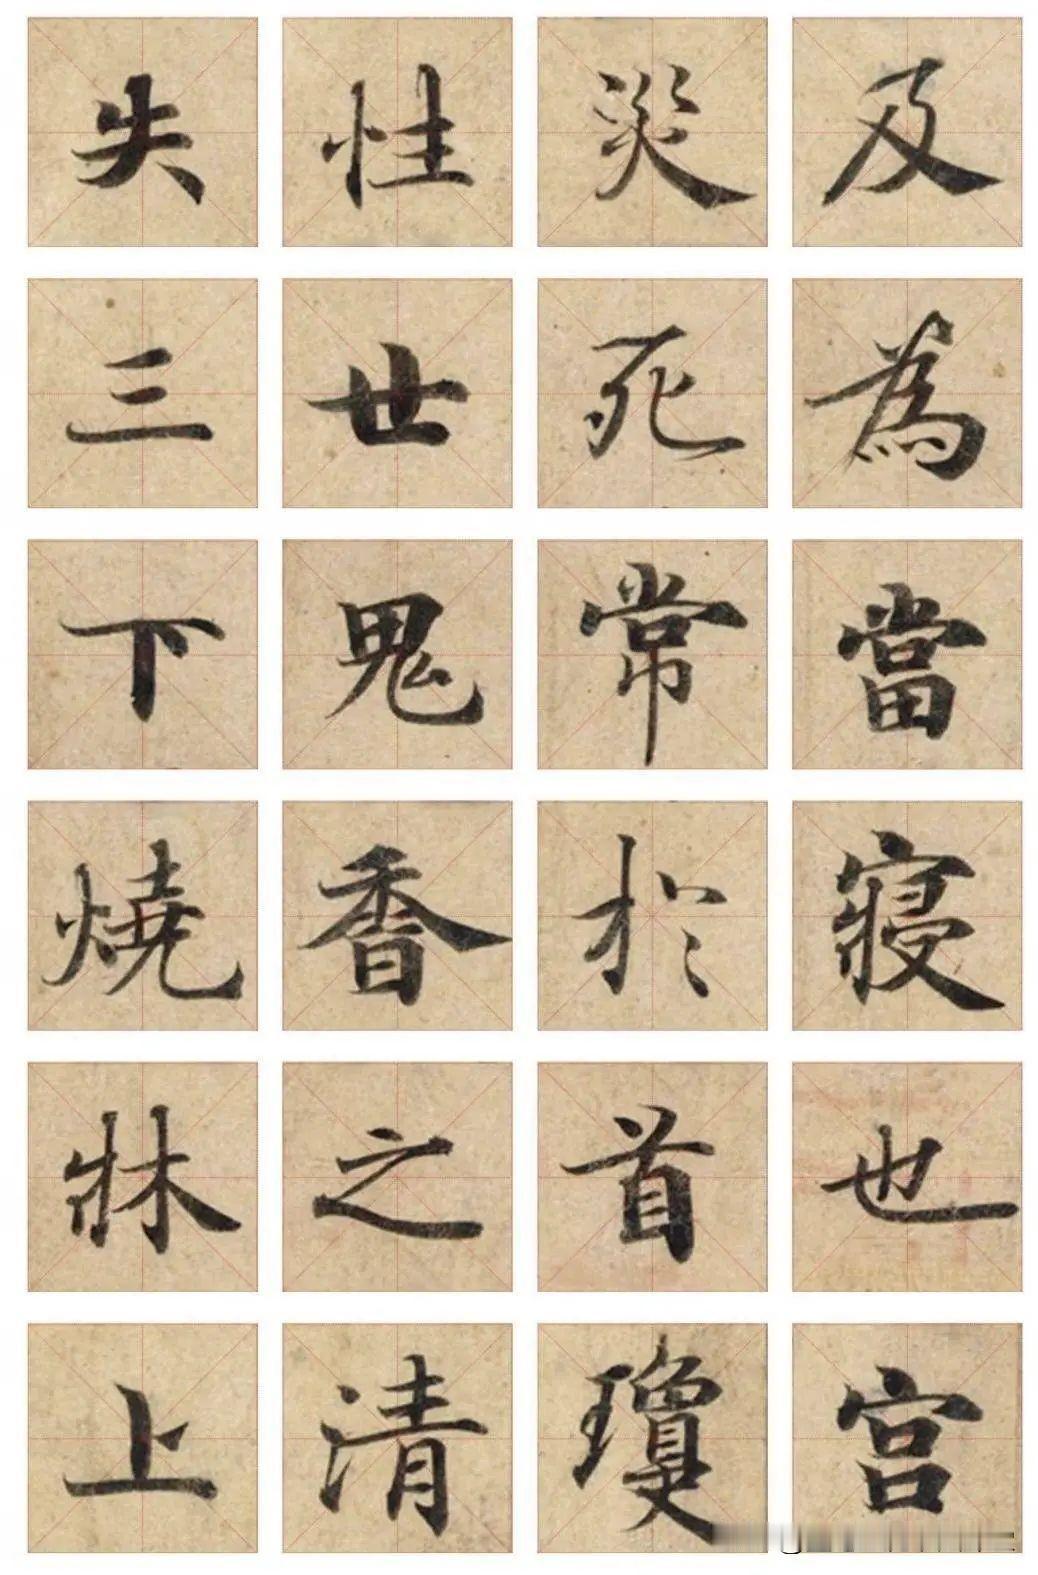 失性災及
三世死為
下鬼常當
燒香於寢
牀之首也
上清瓊宮